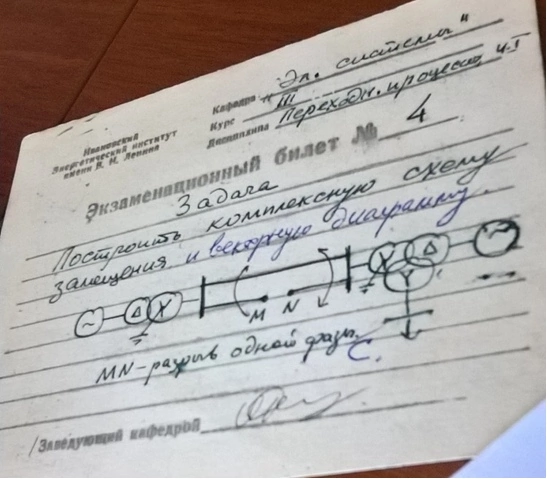 Ивановский
Энергетический институт
имени В. И. Ленина
Кафедра „Эл. системы"
Курс III
Дисциплина Переходн. процессы ч-I
Экзаменационный билет № 4
Задача
Построить комплексную схему
замещения и векторную диаграмму.
Δ Y Y Δ
Y
M N
MN-разрыв одной фазы C.
/Заведующий кафедрой